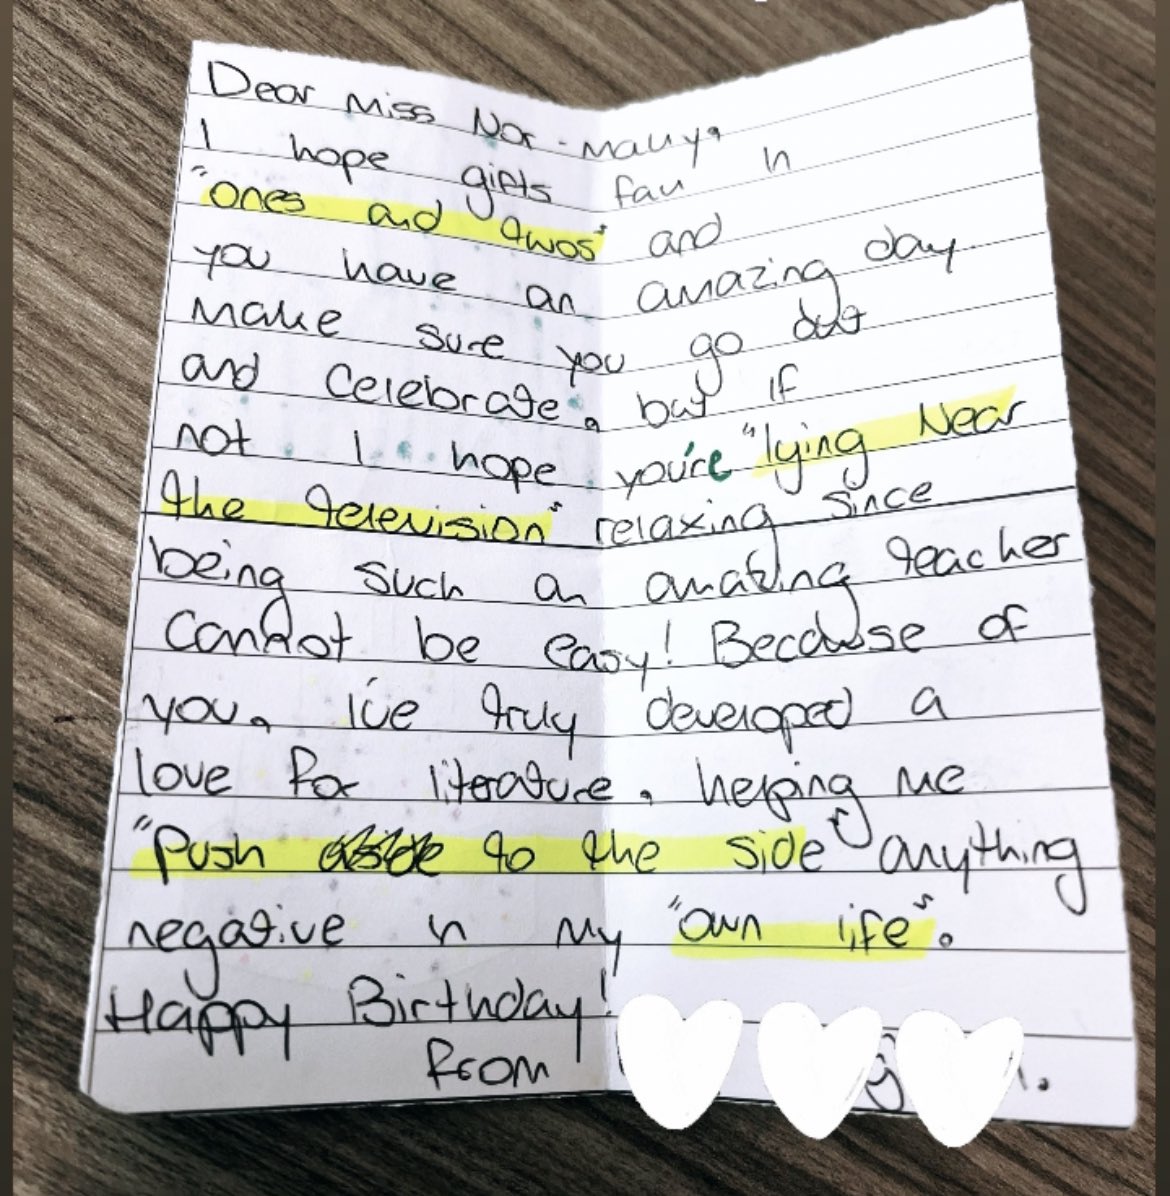 Dear Miss Nor-Mally,
I hope gifts fall in
"ones and twos" and
you have an amazing day
make sure you go out
and celebrate, but if
not I hope you're "lying Near
the television" relaxing since
being such an amazing teacher
cannot be easy! Because of
you, I've truly developed a
love for literature, helping me
"Push to the side" anything
negative in my "own life".
Happy Birthday!
From